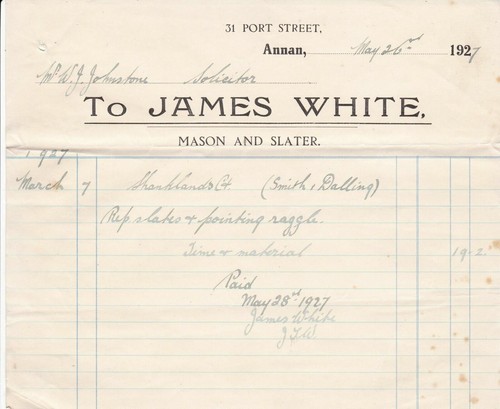 31 PORT STREET,
Annan, May 26th 1927
Mr W. J. Johnstone Solicitor
To JAMES WHITE,
MASON AND SLATER.
1927
March 7 Shacklands Ct. (Smith & Dalling)
Rep slates & pointing raggle.
Time & material 19-2.
Paid
May 28th 1927
James White